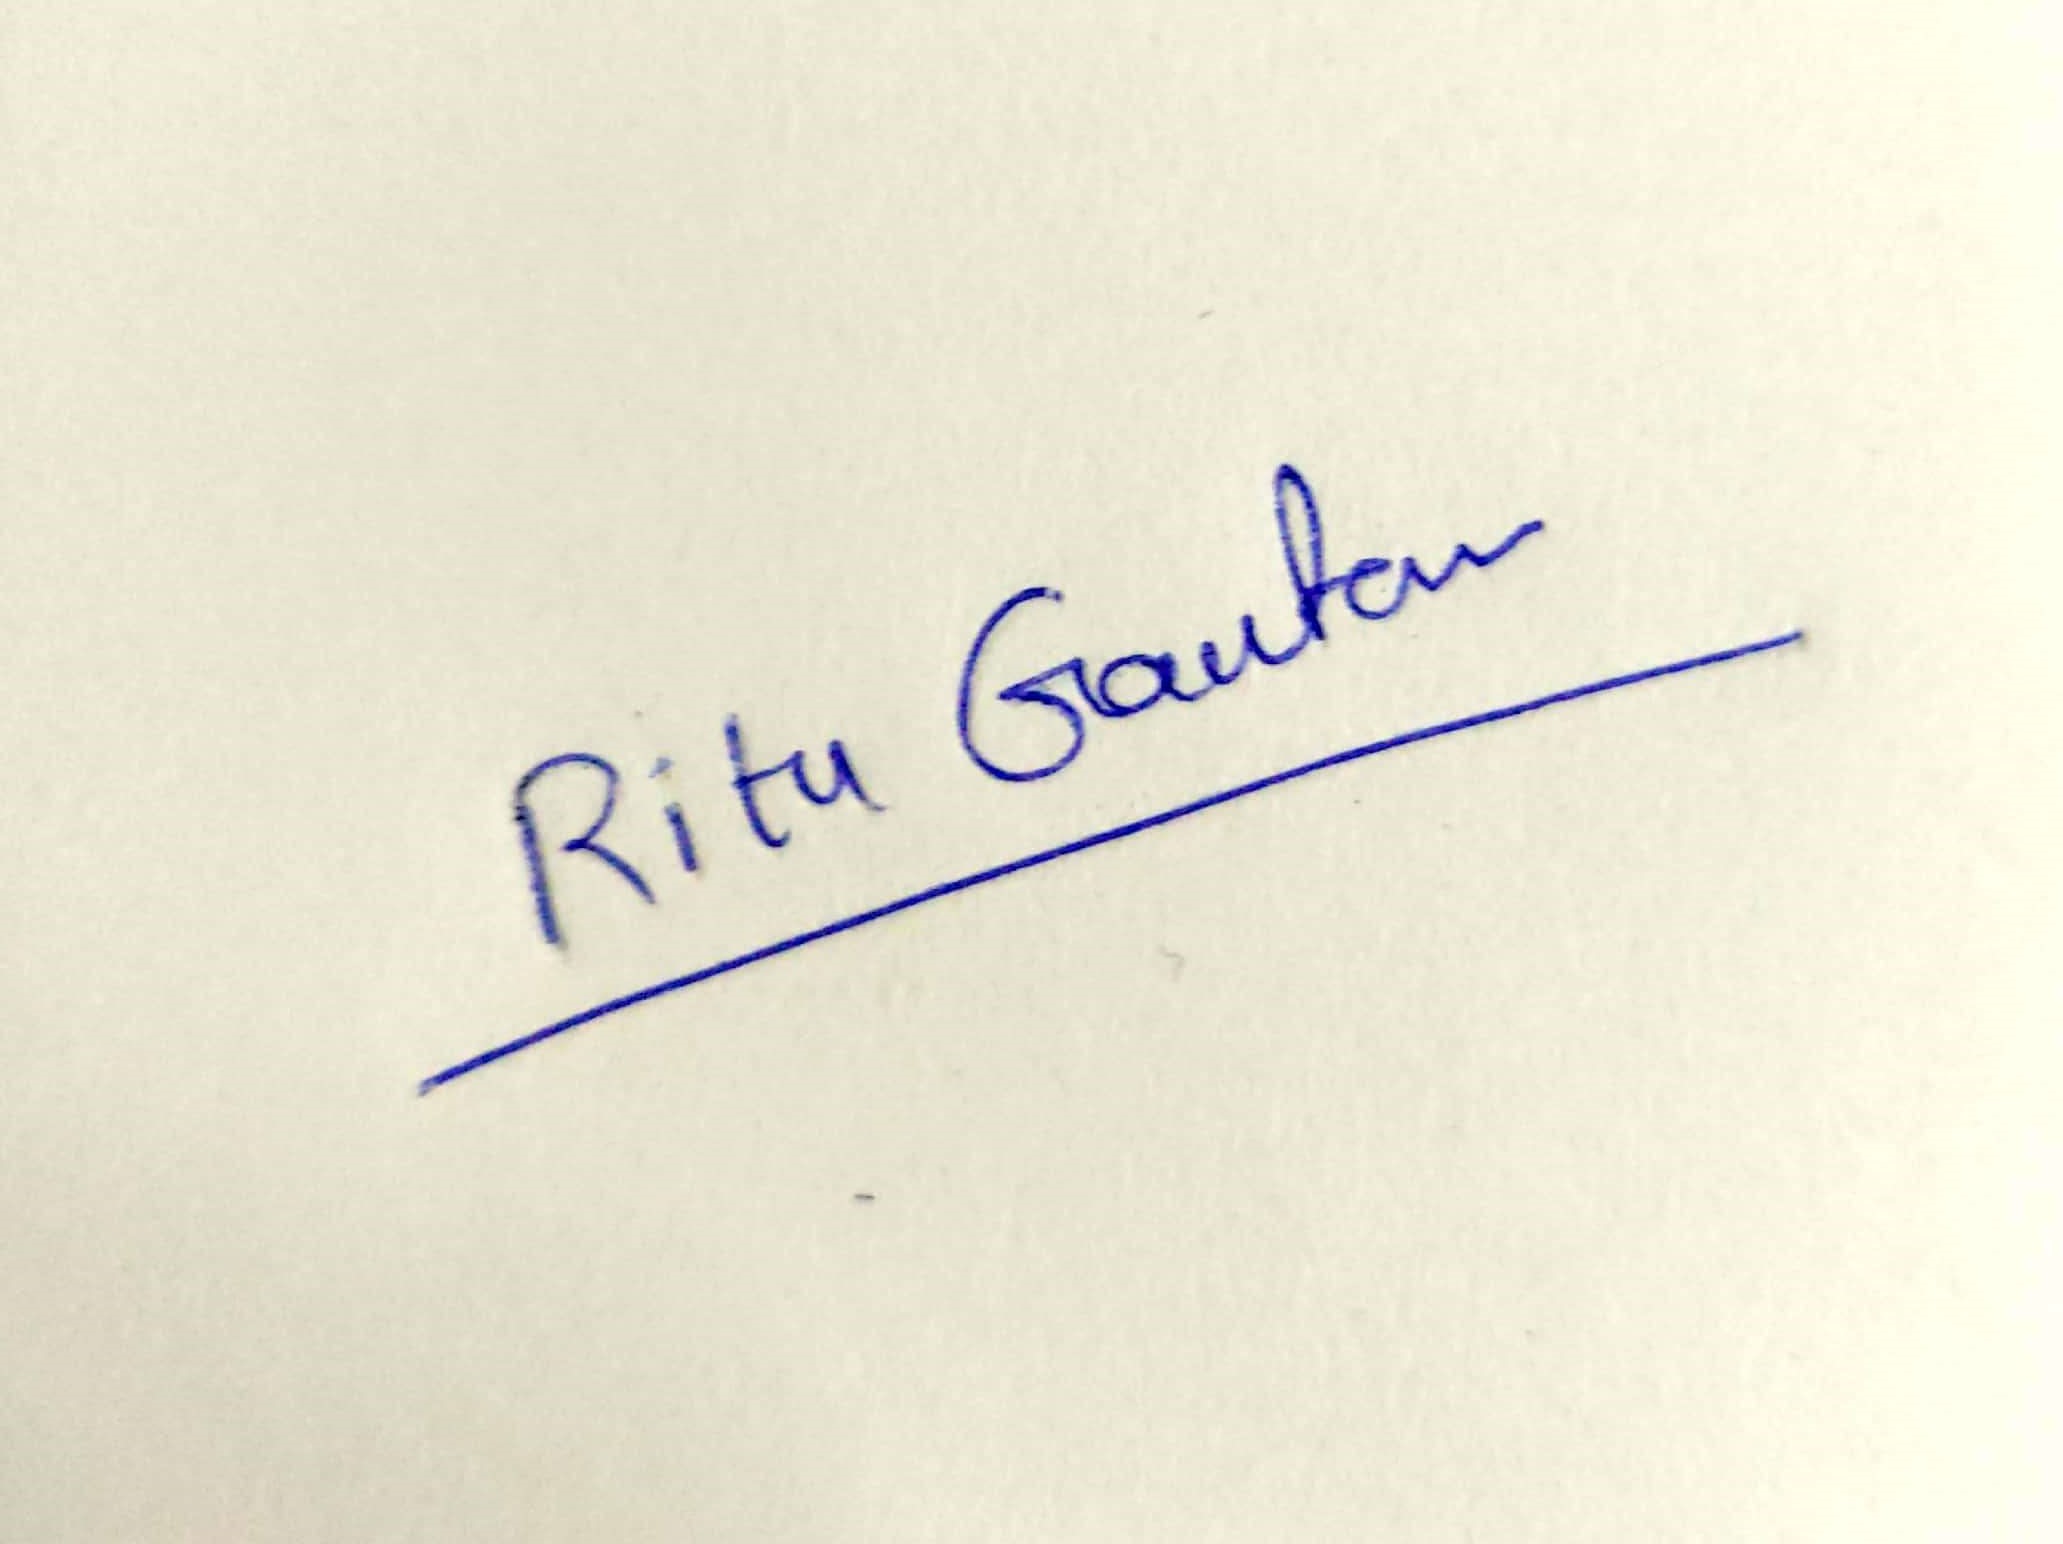 Ritu Gautam